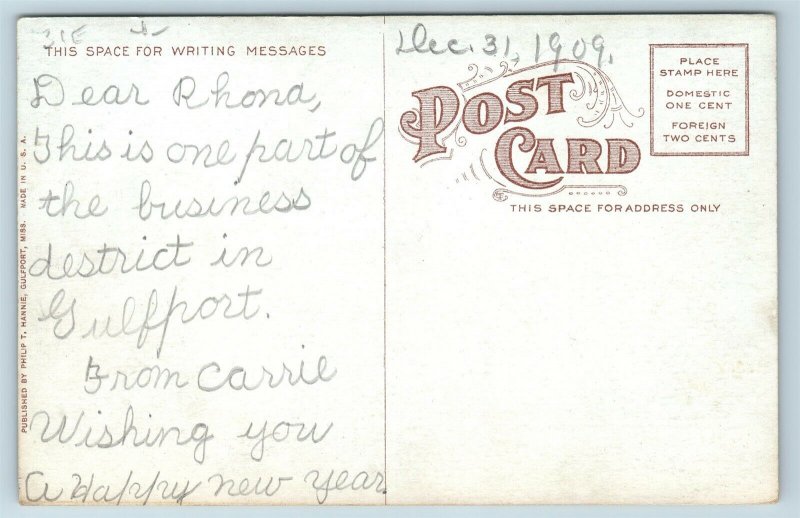 THIS SPACE FOR WRITING MESSAGES
Dear Rhona,
This is one part of
the business
destrict in
Gulfport.
From Carrie
Wishing you
a Happy new year
PUBLISHED BY PHILIP T. HANNIE, GULFPORT, MISS. MADE IN U. S. A.
Dec. 31, 1909.
POST
CARD
THIS SPACE FOR ADDRESS ONLY
PLACE
STAMP HERE
DOMESTIC
ONE CENT
FOREIGN
TWO CENTS